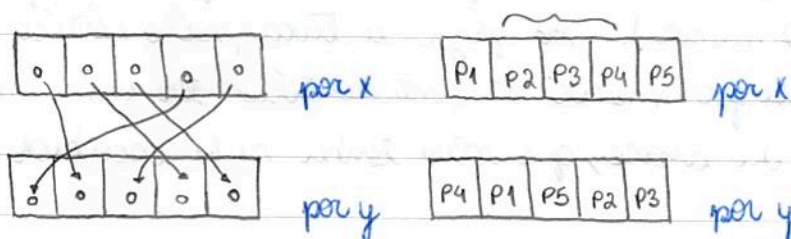 por x
P1 P2 P3 P4 P5 por x
por y
P4 P1 P5 P2 P3 por y